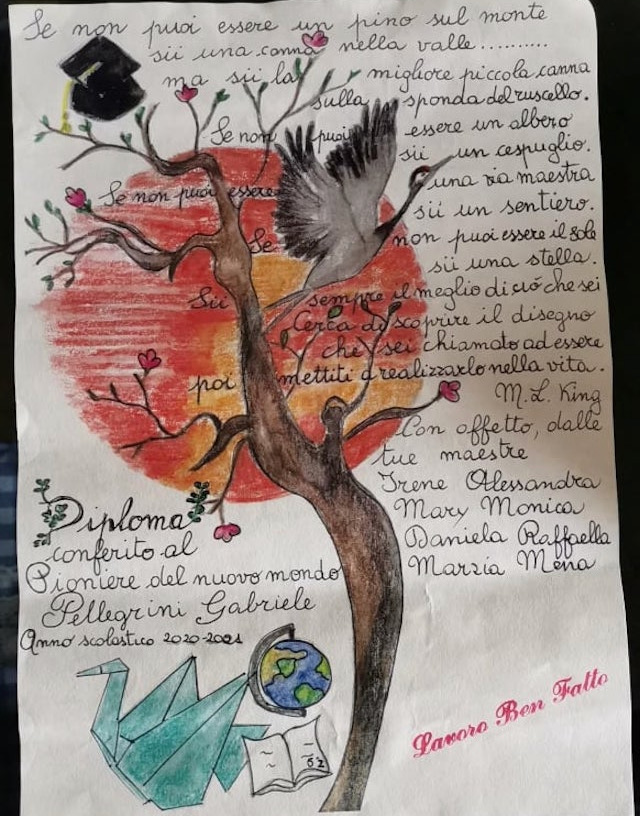 Se non puoi essere un pino sul monte
sii una canna nella valle..........
ma sii la migliore piccola canna
sulla sponda del ruscello.
Se non puoi essere un albero
sii un cespuglio.
Se non puoi essere una via maestra
sii un sentiero.
Se non puoi essere il sole
sii una stella.
Sii sempre il meglio di ció che sei
Cerca di scoprire il disegno
che sei chiamato ad essere
poi mettiti a realizzarlo nella vita.
M.L. King
Con affetto, dalle
tue maestre
Irene Alessandra
Mary Monica
Daniela Raffaella
Marzia Mena
Diploma
conferito al
Pioniere del nuovo mondo
Pellegrini Gabriele
Anno scolastico 2020-2021
Lavoro Ben Fatto